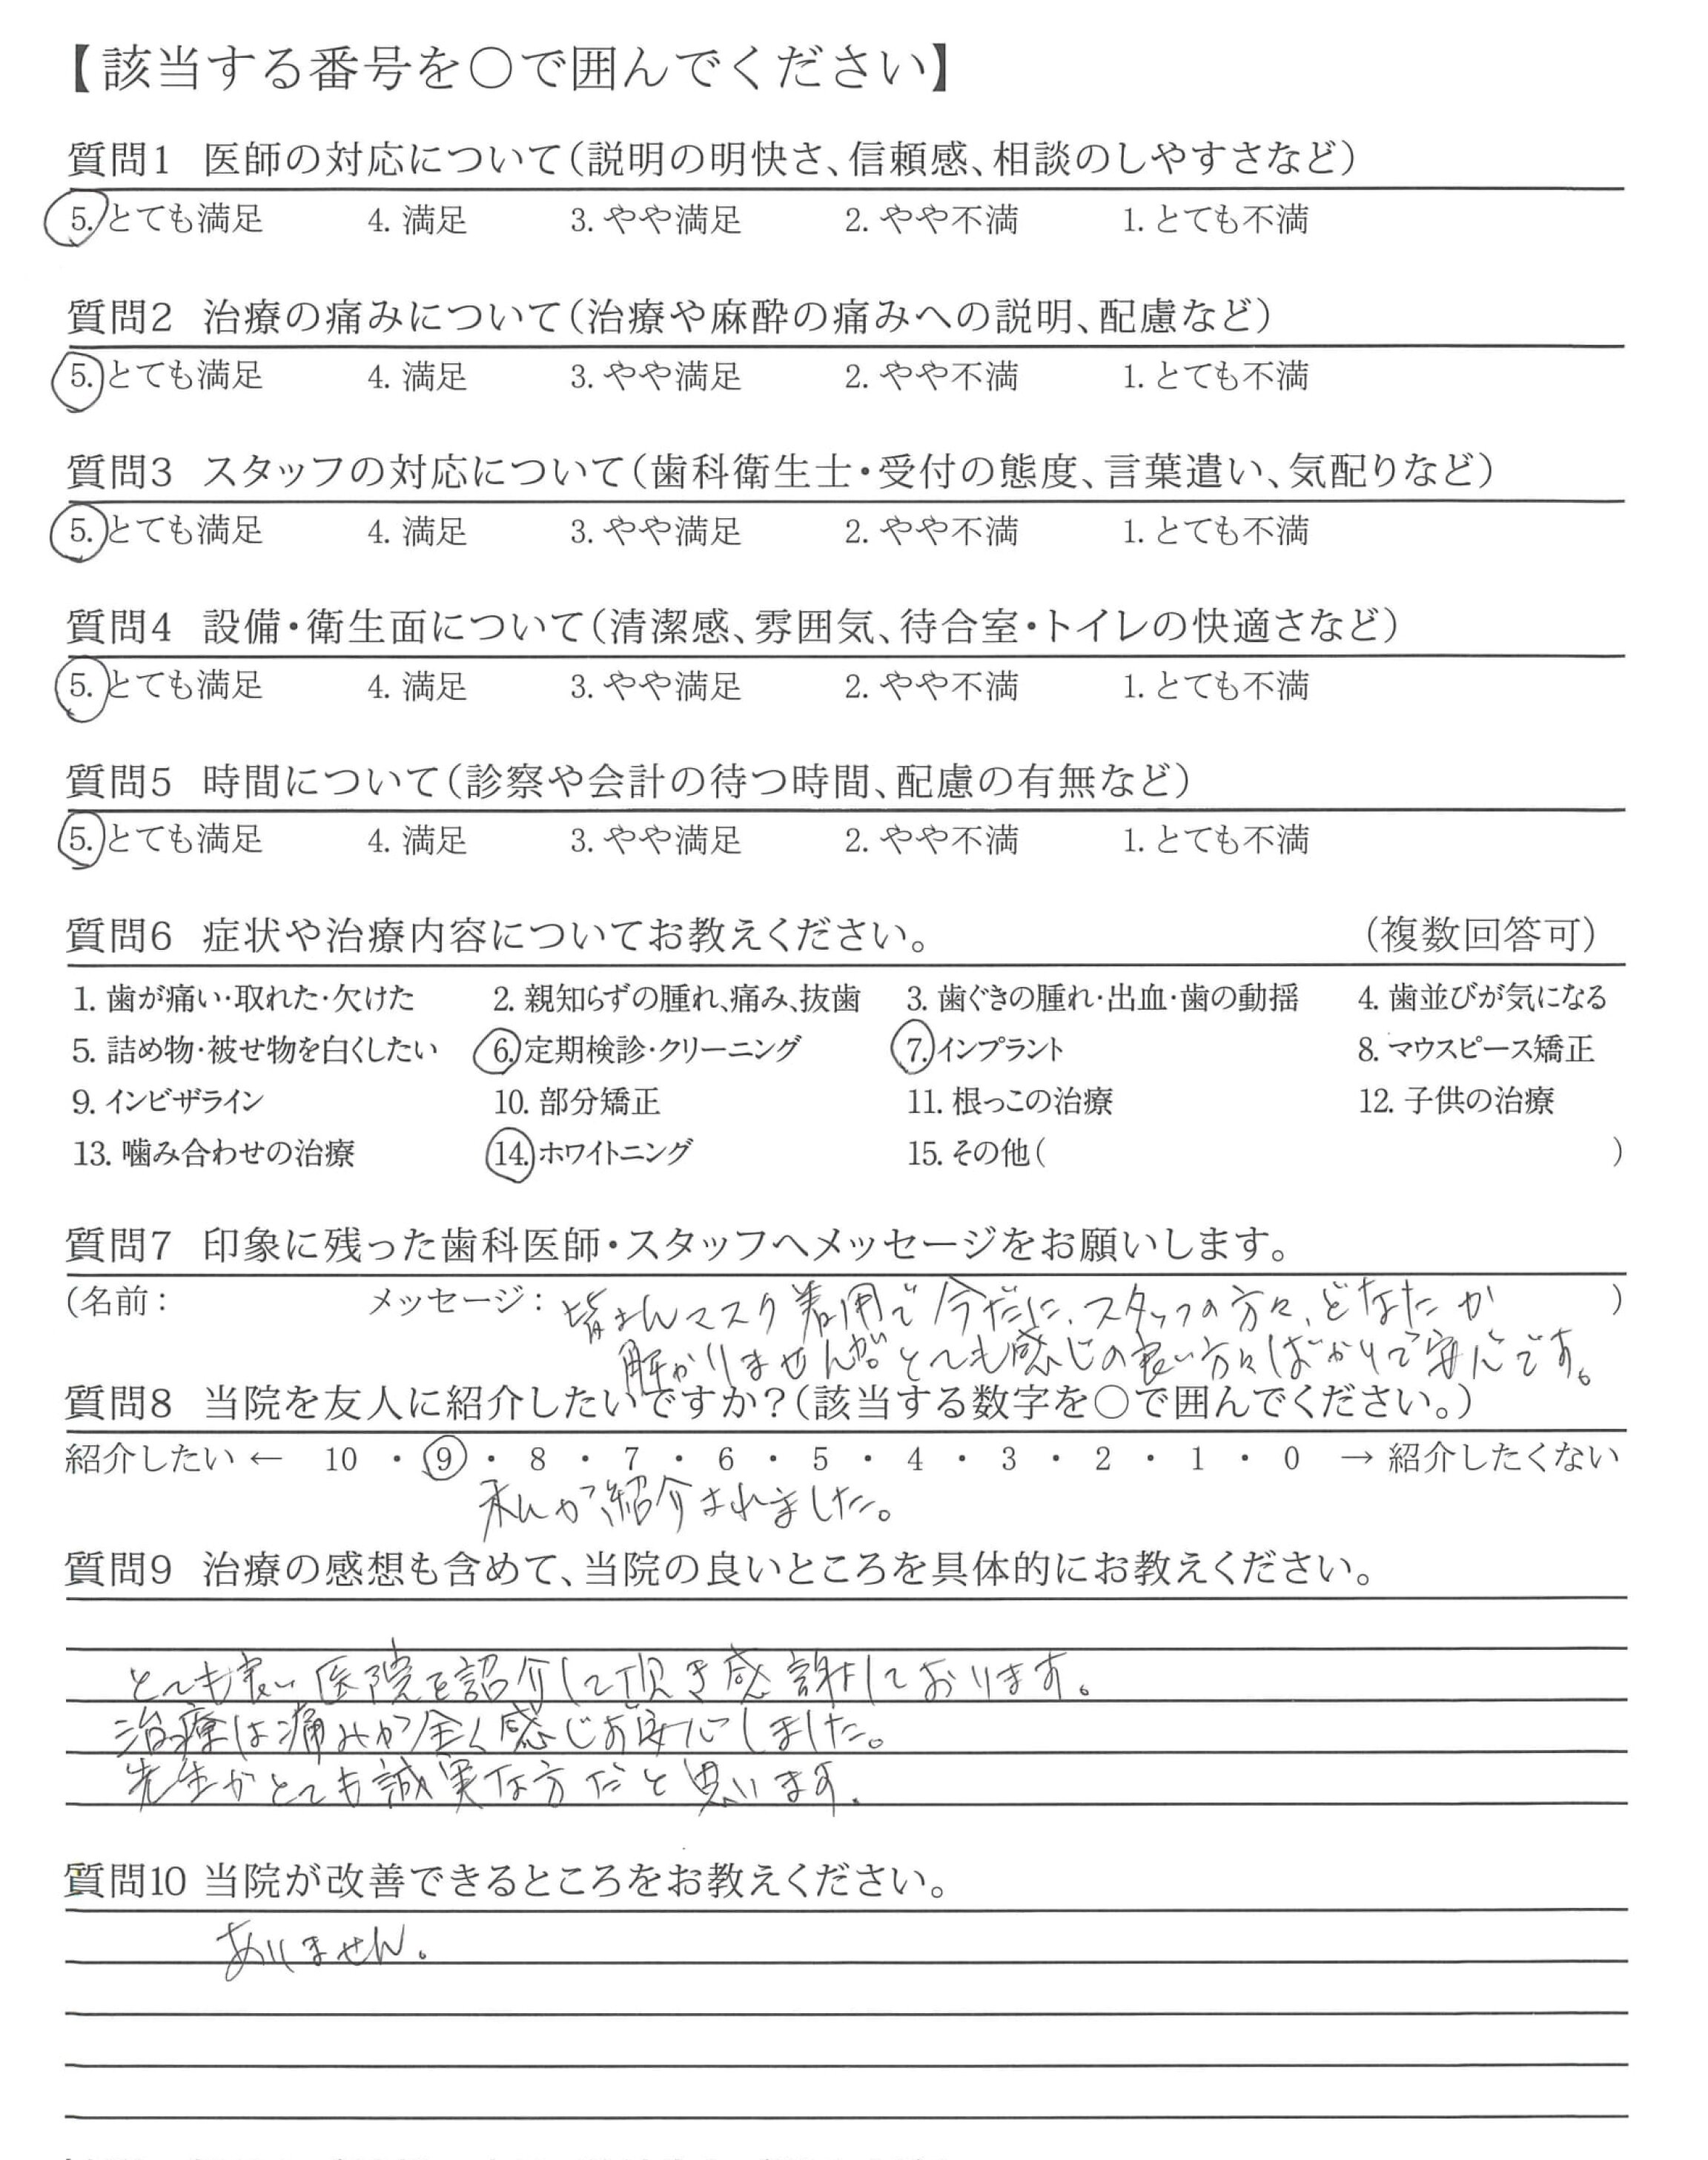 【該当する番号を○で囲んでください】
質問1 医師の対応について(説明の明快さ、信頼感、相談のしやすさなど)
5. とても満足 4. 満足 3. やや満足 2. やや不満 1. とても不満
質問2 治療の痛みについて(治療や麻酔の痛みへの説明、配慮など)
5. とても満足 4. 満足 3. やや満足 2. やや不満 1. とても不満
質問3 スタッフの対応について(歯科衛生士・受付の態度、言葉遣い、気配りなど)
5. とても満足 4. 満足 3. やや満足 2. やや不満 1. とても不満
質問4 設備・衛生面について(清潔感、雰囲気、待合室・トイレの快適さなど)
5. とても満足 4. 満足 3. やや満足 2. やや不満 1. とても不満
質問5 時間について(診察や会計の待つ時間、配慮の有無など)
5. とても満足 4. 満足 3. やや満足 2. やや不満 1. とても不満
質問6 症状や治療内容についてお教えください。 (複数回答可)
1. 歯が痛い・取れた・欠けた 2. 親知らずの腫れ、痛み、抜歯 3. 歯ぐきの腫れ・出血・歯の動揺 4. 歯並びが気になる
5. 詰め物・被せ物を白くしたい 6. 定期検診・クリーニング 7. インプラント 8. マウスピース矯正
9. インビザライン 10. 部分矯正 11. 根っこの治療 12. 子供の治療
13. 噛み合わせの治療 14. ホワイトニング 15. その他( )
質問7 印象に残った歯科医師・スタッフへメッセージをお願いします。
(名前: メッセージ: 皆さんマスク着用で今だに、スタッフの方々、どなたか )
解かりませんが。とても感じの良い方々ばかりで安心です。
質問8 当院を友人に紹介したいですか?(該当する数字を○で囲んでください。)
紹介したい ← 10 ・ 9 ・ 8 ・ 7 ・ 6 ・ 5 ・ 4 ・ 3 ・ 2 ・ 1 ・ 0 → 紹介したくない
私が紹介されました。
質問9 治療の感想も含めて、当院の良いところを具体的にお教えください。
とても良い医院を紹介して頂き感謝しております。
治療は痛みが全く感じず安心しました。
先生がとても誠実な方だと思います.
質問10 当院が改善できるところをお教えください。
ありません.